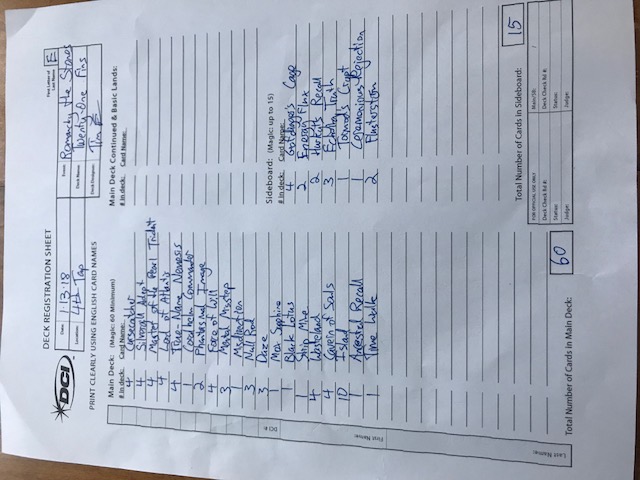 DECK REGISTRATION SHEET
First Letter of Last Name: E
DCI
Date: 1·13·18
Location: 4th Tap
Event: Romancing the Stones
Deck Name: Twenty-One Fins
Deck Designer: Tim E
PRINT CLEARLY USING ENGLISH CARD NAMES
Main Deck: (Magic: 60 Minimum)
# in deck: Card Name:
4 Cursecatcher
4 Silvergill Adept
4 Master of the Pearl Trident
4 Lord of Atlantis
4 True-Name Nemesis
1 Coralhelm Commander
2 Phantasmal Image
4 Force of Will
3 Mental Misstep
1 Misdirection
3 Null Rod
3 Daze
1 Mox Sapphire
1 Black Lotus
1 Strip Mine
4 Wasteland
4 Cavern of Souls
10 Island
1 Ancestral Recall
1 Time Walk
Total Number of Cards in Main Deck: 60
Main Deck Continued & Basic Lands:
# in deck: Card Name:
Sideboard: (Magic: up to 15)
# in deck: Card Name:
4 Grafdigger's Cage
2 Energy Flux
2 Hurkyl's Recall
3 Echoing Truth
1 Tormod's Crypt
1 Ceremonious Rejection
2 Flusterstorm
Total Number of Cards in Sideboard: 15
FOR OFFICIAL USE ONLY
Main/SB: /
Deck Check Rd #:
Deck Check Rd #:
Status:
Status:
Judge:
Judge:
DCI #:
First Name:
Last Name: